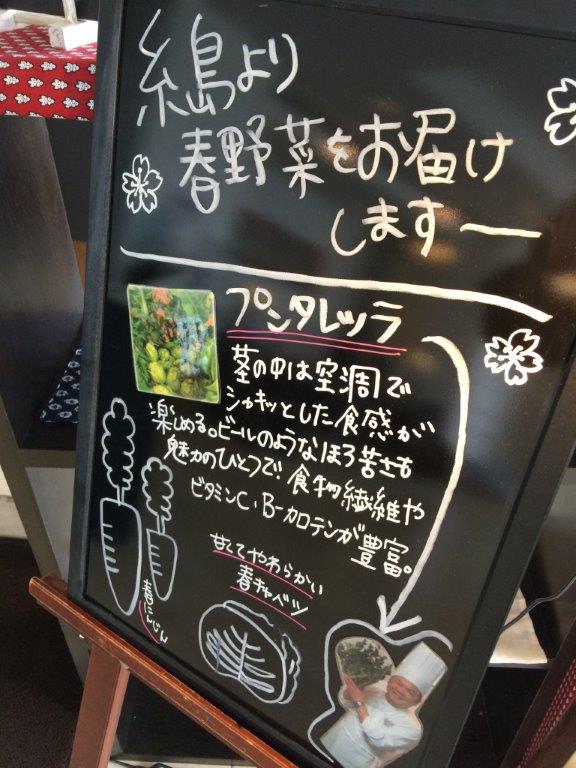 糸島より
春野菜をお届け
しますー
プンタレッラ
茎の中は空洞で
シャキッとした食感が
楽しめる。ビールのようなほろ苦さも
魅力のひとつで、食物繊維や
ビタミンC、B-カロテンが豊富。
甘くてやわらかい
春キャベツ
春にんじん